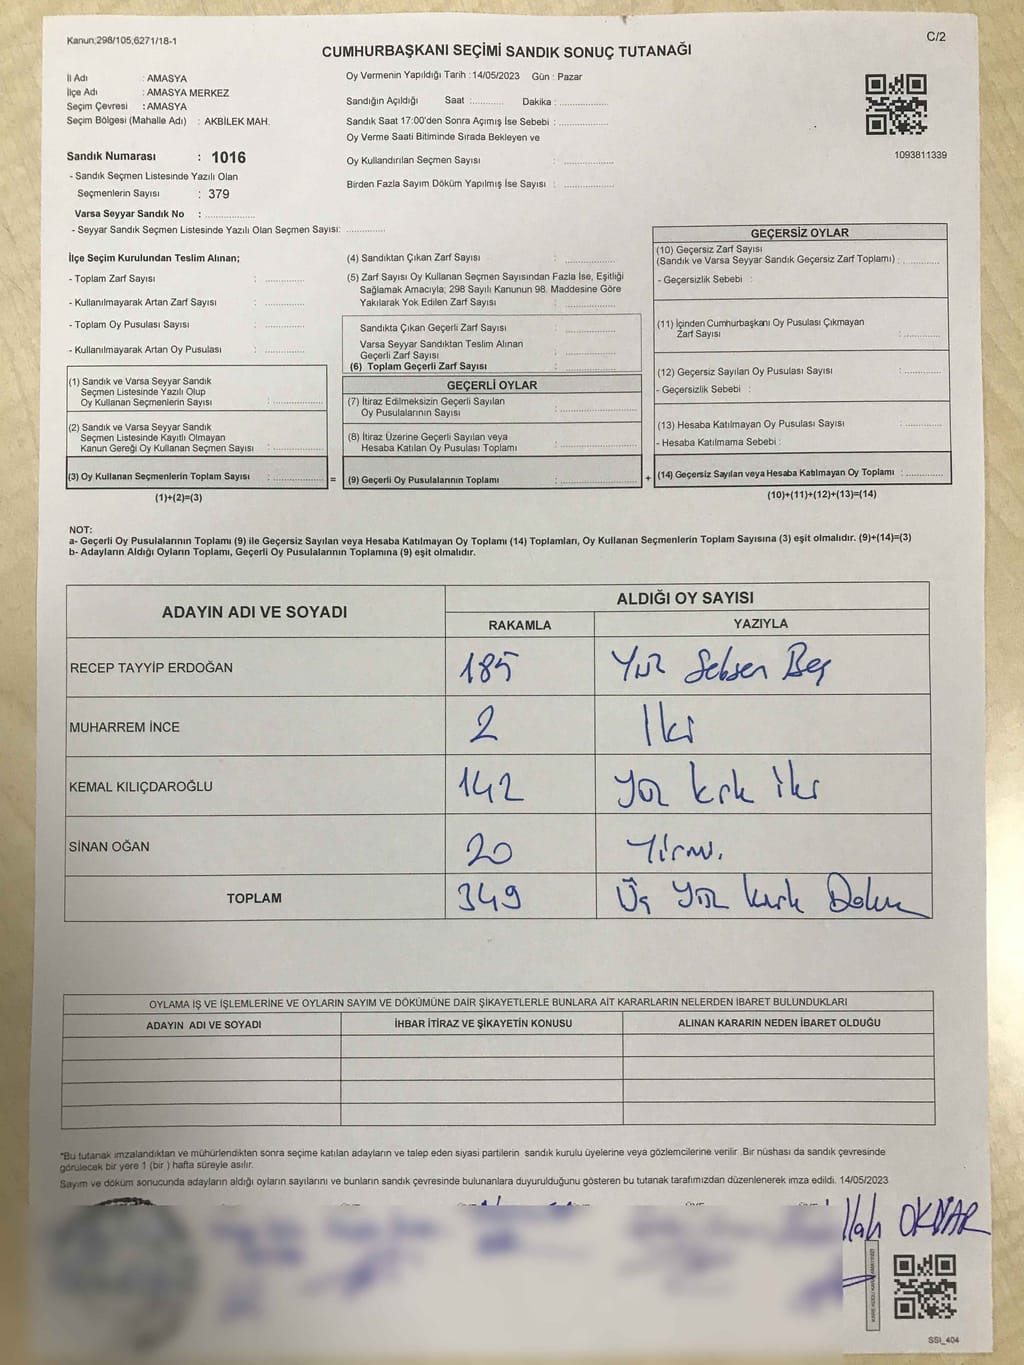 Kanun;298/105,6271/18-1
C/2
CUMHURBAŞKANI SEÇİMİ SANDIK SONUÇ TUTANAĞI
İl Adı : AMASYA
İlçe Adı : AMASYA MERKEZ
Seçim Çevresi : AMASYA
Seçim Bölgesi (Mahalle Adı) : AKBİLEK MAH.
Sandık Numarası : 1016
- Sandık Seçmen Listesinde Yazılı Olan
Seçmenlerin Sayısı : 379
Varsa Seyyar Sandık No : ...............
- Seyyar Sandık Seçmen Listesinde Yazılı Olan Seçmen Sayısı: ............
Oy Vermenin Yapıldığı Tarih : 14/05/2023 Gün : Pazar
Sandığın Açıldığı Saat :.......... Dakika : ...............
Sandık Saat 17:00'den Sonra Açımış İse Sebebi : ...............
Oy Verme Saati Bitiminde Sırada Bekleyen ve
Oy Kullandırılan Seçmen Sayısı : ...............
Birden Fazla Sayım Döküm Yapılmış İse Sayısı : ...............
1093811339
İlçe Seçim Kurulundan Teslim Alınan;
- Toplam Zarf Sayısı : ............
- Kullanılmayarak Artan Zarf Sayısı : ............
- Toplam Oy Pusulası Sayısı : ............
- Kullanılmayarak Artan Oy Pusulası : ............
(1) Sandık ve Varsa Seyyar Sandık
Seçmen Listesinde Yazılı Olup
Oy Kullanan Seçmenlerin Sayısı : ...............
(2) Sandık ve Varsa Seyyar Sandık
Seçmen Listesinde Kayıtlı Olmayan
Kanun Gereği Oy Kullanan Seçmen Sayısı : ...............
(3) Oy Kullanan Seçmenlerin Toplam Sayısı : ...............
(1)+(2)=(3)
=
(4) Sandıktan Çıkan Zarf Sayısı : ...............
(5) Zarf Sayısı Oy Kullanan Seçmen Sayısından Fazla İse, Eşitliği
Sağlamak Amacıyla; 298 Sayılı Kanunun 98. Maddesine Göre
Yakılarak Yok Edilen Zarf Sayısı : ...............
Sandıkta Çıkan Geçerli Zarf Sayısı : ...............
Varsa Seyyar Sandıktan Teslim Alınan
Geçerli Zarf Sayısı : ...............
(6) Toplam Geçerli Zarf Sayısı : ...............
GEÇERLİ OYLAR
(7) İtiraz Edilmeksizin Geçerli Sayılan
Oy Pusulalarının Sayısı : ...............
(8) İtiraz Üzerine Geçerli Sayılan veya
Hesaba Katılan Oy Pusulaları Toplamı : ...............
(9) Geçerli Oy Pusulalarının Toplamı : ...............
+
GEÇERSİZ OYLAR
(10) Geçersiz Zarf Sayısı
(Sandık ve Varsa Seyyar Sandık Geçersiz Zarf Toplamı) : ............
- Geçersizlik Sebebi :
(11) İçinden Cumhurbaşkanı Oy Pusulası Çıkmayan
Zarf Sayısı : ............
(12) Geçersiz Sayılan Oy Pusulası Sayısı : ............
- Geçersizlik Sebebi :
(13) Hesaba Katılmayan Oy Pusulası Sayısı : ............
- Hesaba Katılmama Sebebi :
(14) Geçersiz Sayılan veya Hesaba Katılmayan Oy Toplamı : ............
(10)+(11)+(12)+(13)=(14)
NOT:
a- Geçerli Oy Pusulalarının Toplamı (9) ile Geçersiz Sayılan veya Hesaba Katılmayan Oy Toplamı (14) Toplamları, Oy Kullanan Seçmenlerin Toplam Sayısına (3) eşit olmalıdır. (9)+(14)=(3)
b- Adayların Aldığı Oyların Toplamı, Geçerli Oy Pusulalarının Toplamına (9) eşit olmalıdır.
ADAYIN ADI VE SOYADI ALDIĞI OY SAYISI
RAKAMLA YAZIYLA
RECEP TAYYİP ERDOĞAN 185 Yüz Seksen Beş
MUHARREM İNCE 2 Iki
KEMAL KILIÇDAROĞLU 142 Yüz kırk iki
SİNAN OĞAN 20 Yirmi
TOPLAM 349 Üç Yüz kırk Dokuz
OYLAMA İŞ VE İŞLEMLERİNE VE OYLARIN SAYIM VE DÖKÜMÜNE DAİR ŞİKAYETLERLE BUNLARA AİT KARARLARIN NELERDEN İBARET BULUNDUKLARI
ADAYIN ADI VE SOYADI İHBAR İTİRAZ VE ŞİKAYETİN KONUSU ALINAN KARARIN NEDEN İBARET OLDUĞU
*Bu tutanak imzalandıktan ve mühürlendikten sonra seçime katılan adayların ve talep eden siyasi partilerin sandık kurulu üyelerine veya gözlemcilerine verilir .Bir nüshası da sandık çevresinde
görülecek bir yere 1 (bir ) hafta süreyle asılır.
Sayım ve döküm sonucunda adayların aldığı oyların sayılarını ve bunların sandık çevresinde bulunanlara duyurulduğunu gösteren bu tutanak tarafımızdan düzenlenerek imza edildi. 14/05/2023
OKNAR
SSI_404